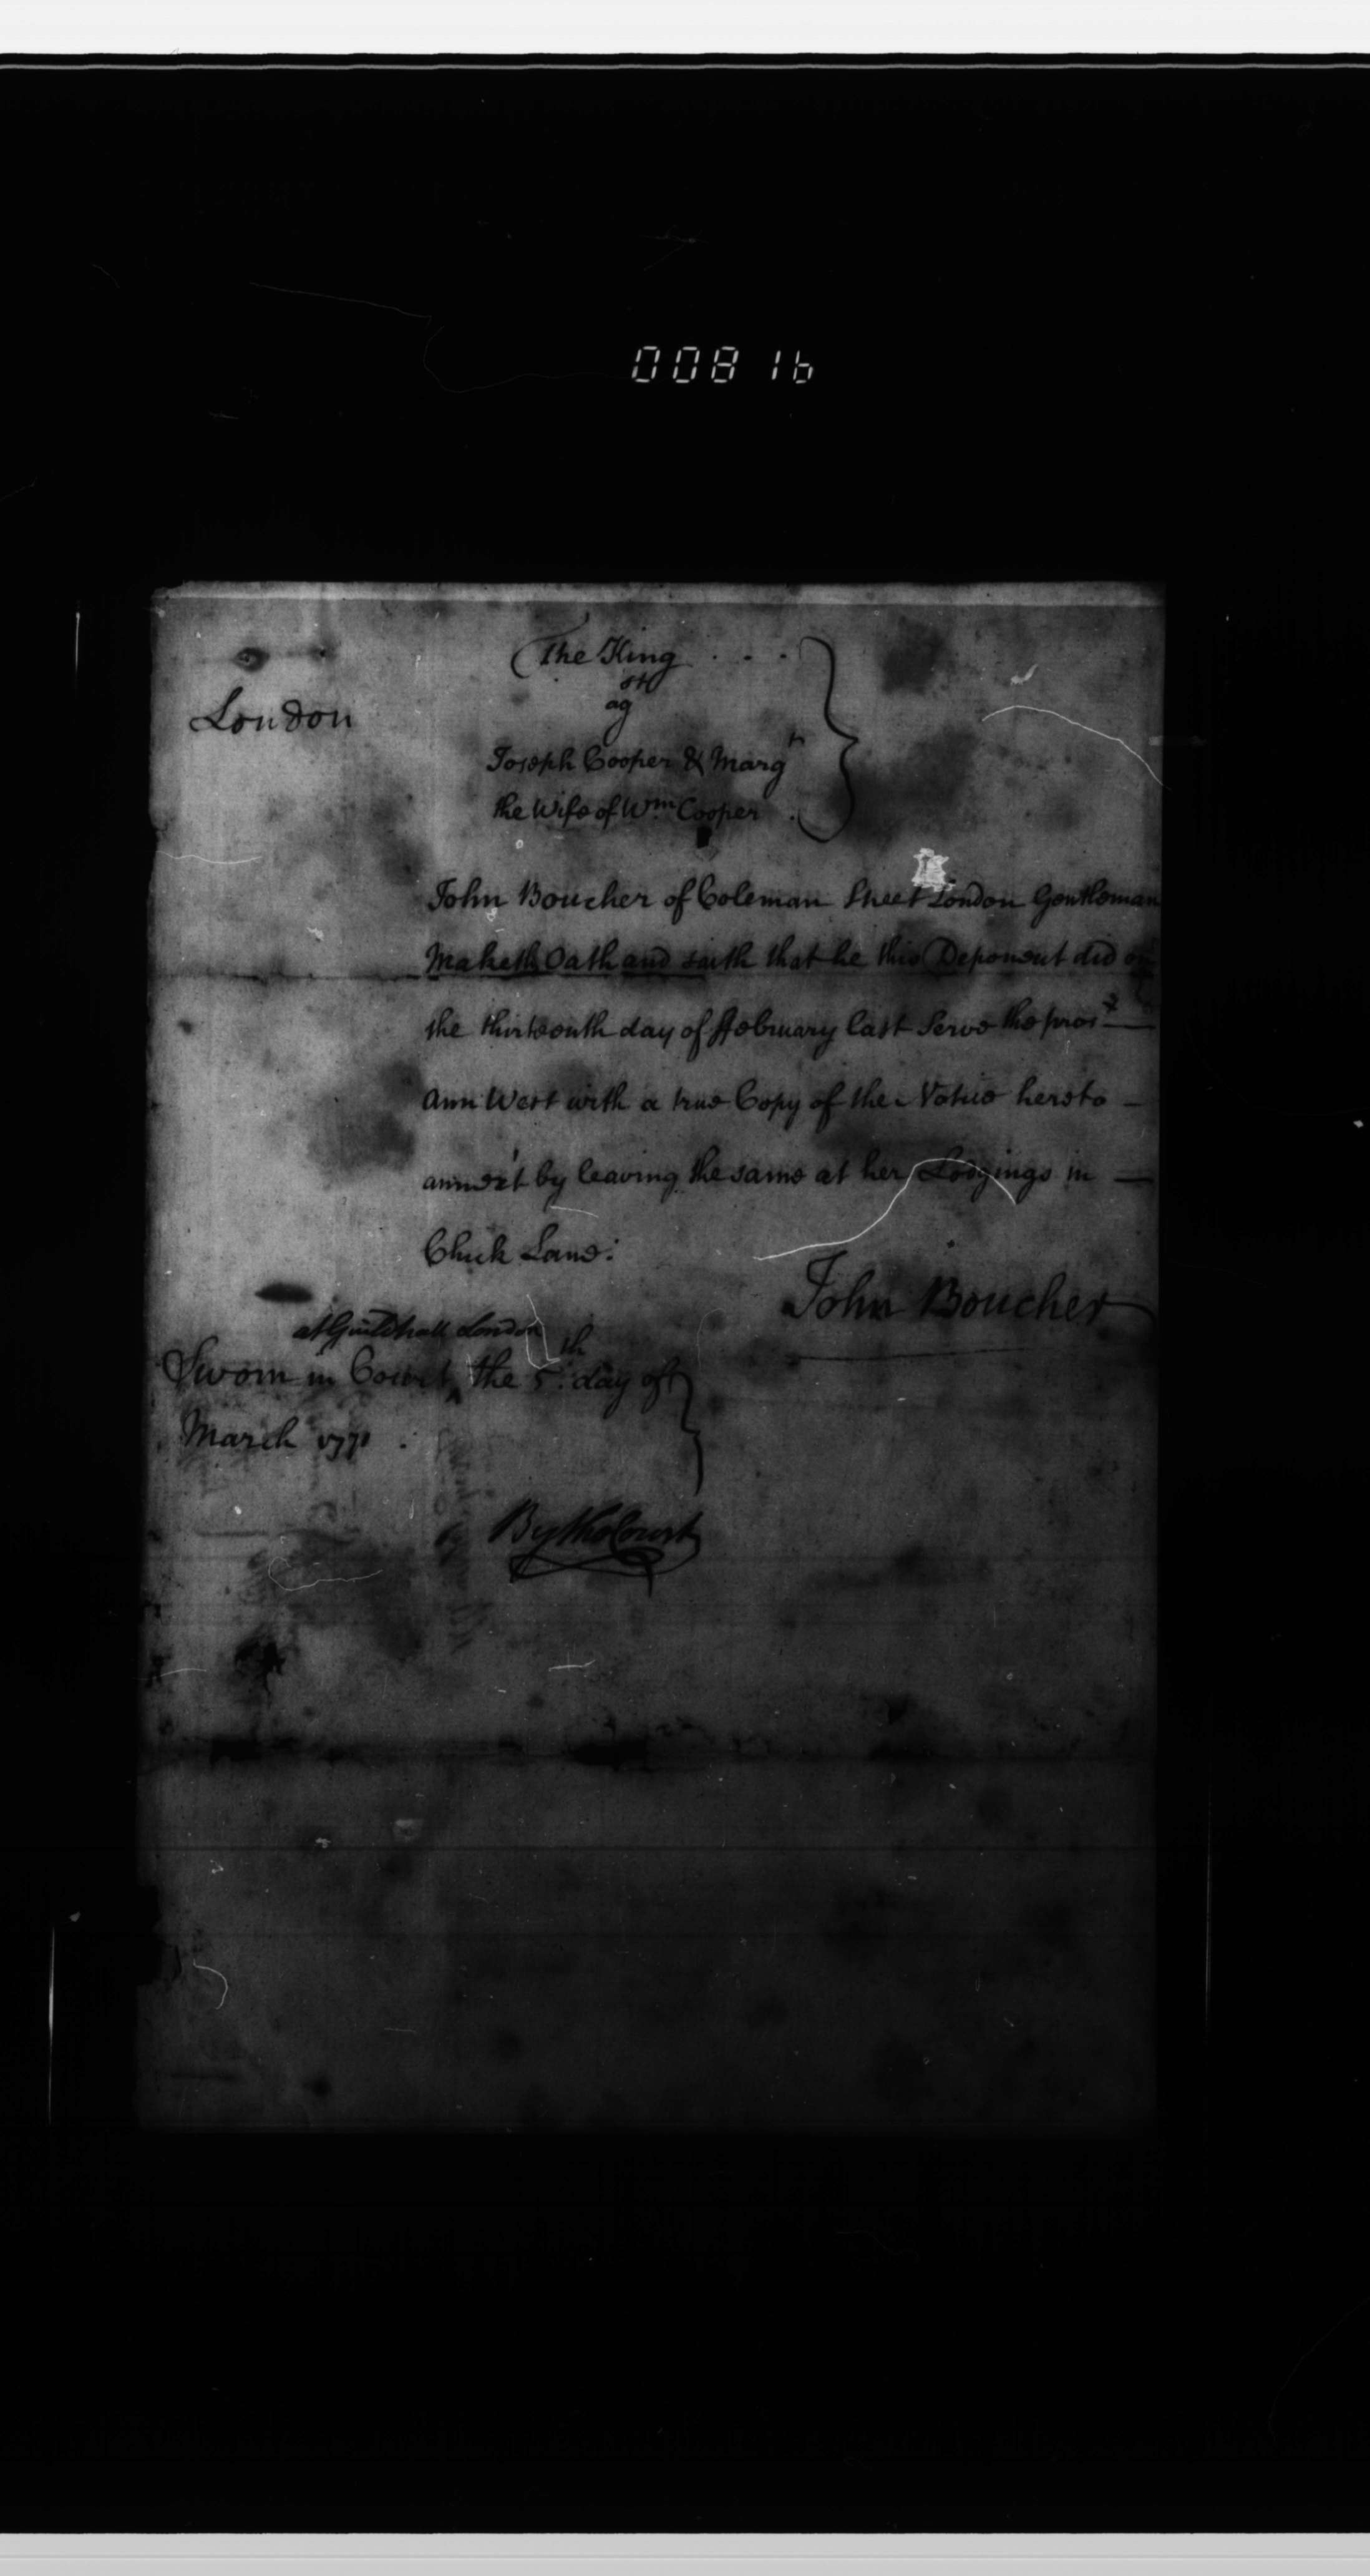 00816
The King . . .
London
agst
Joseph Cooper & Margt
the Wife of Wm Cooper .
John Boucher of Coleman Street London Gentleman
Maketh Oath and saith that he this Deponent did on
the thirteenth day of ffebruary last Serve the prosx
Ann West with a true Copy of the Notice hereto
annex't by leaving the same at her Lodgings in
Chick Lane.
John Boucher
at Guildhall London
Sworn in Court ‸ the 5th day of
March 1771 .
By the Court